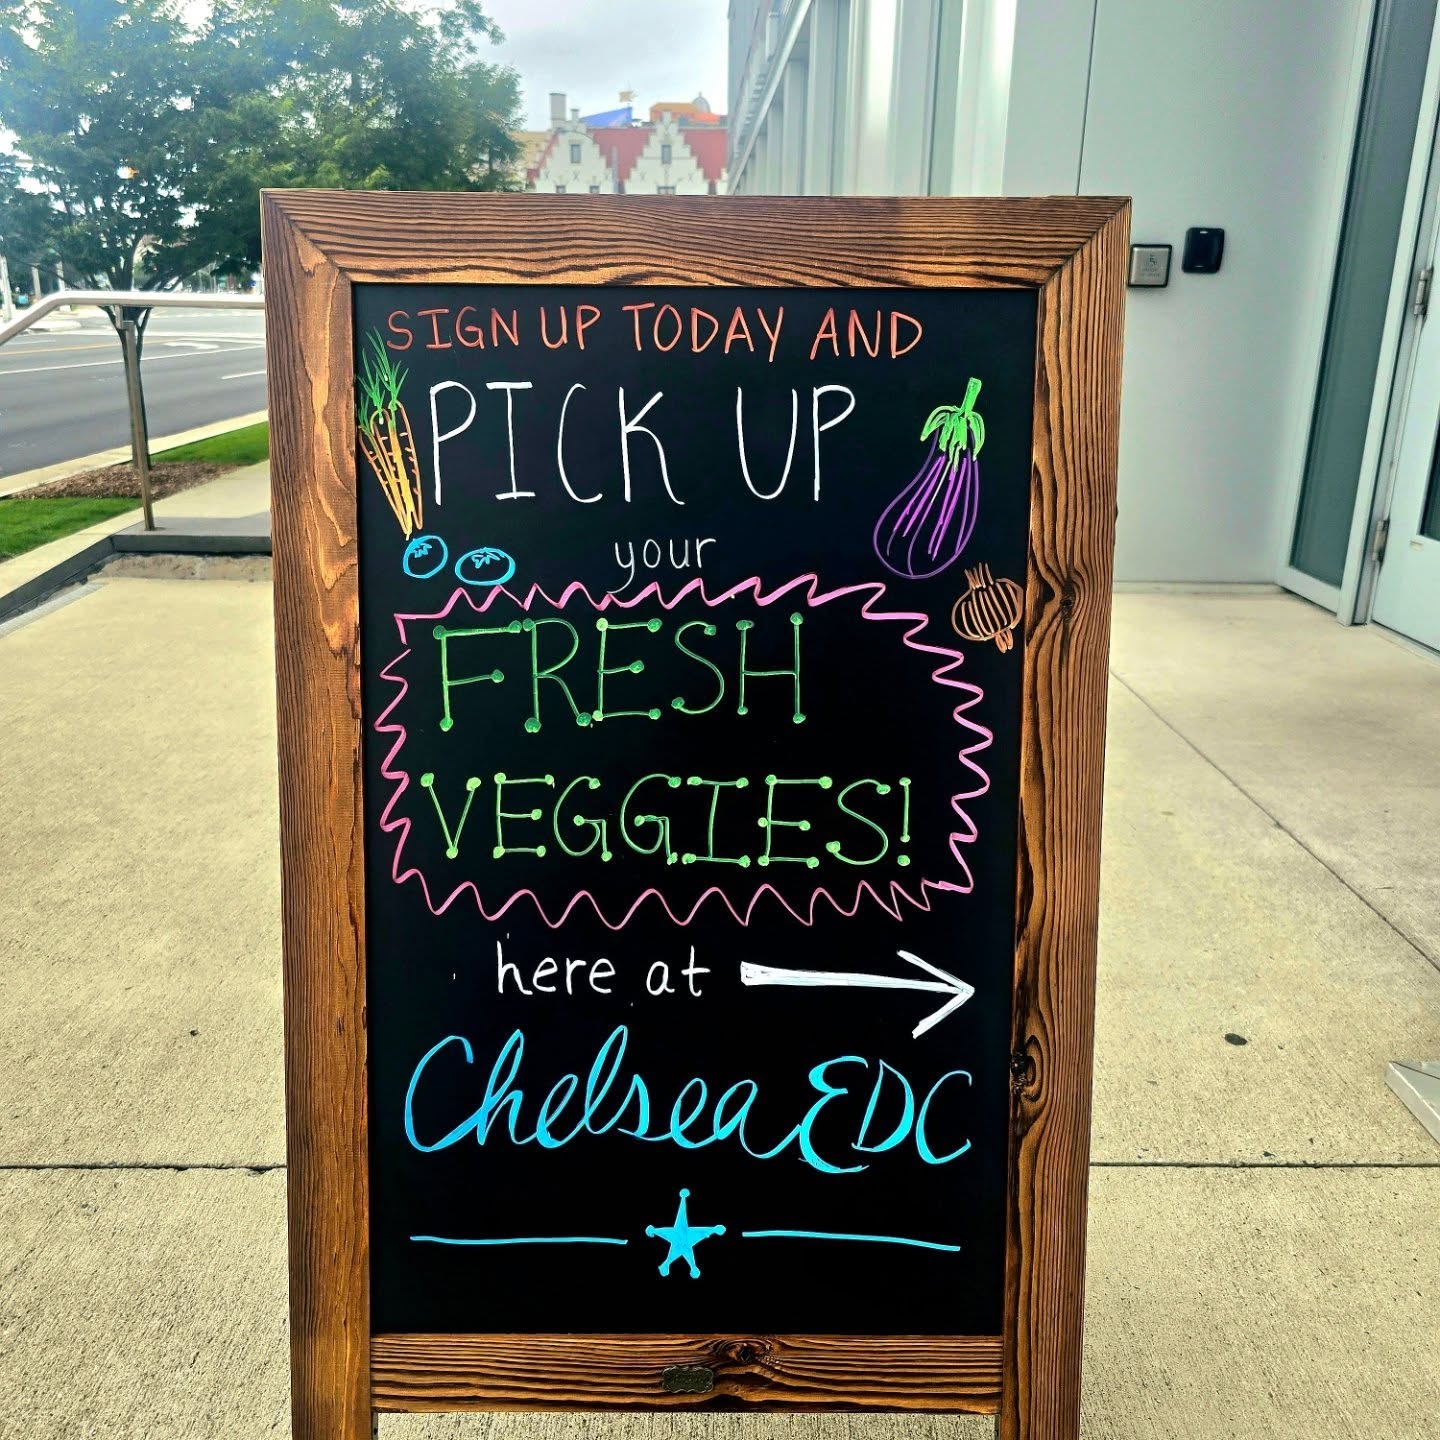 SIGN UP TODAY AND
PICK UP
your
FRESH
VEGGIES!
here at
Chelsea EDC